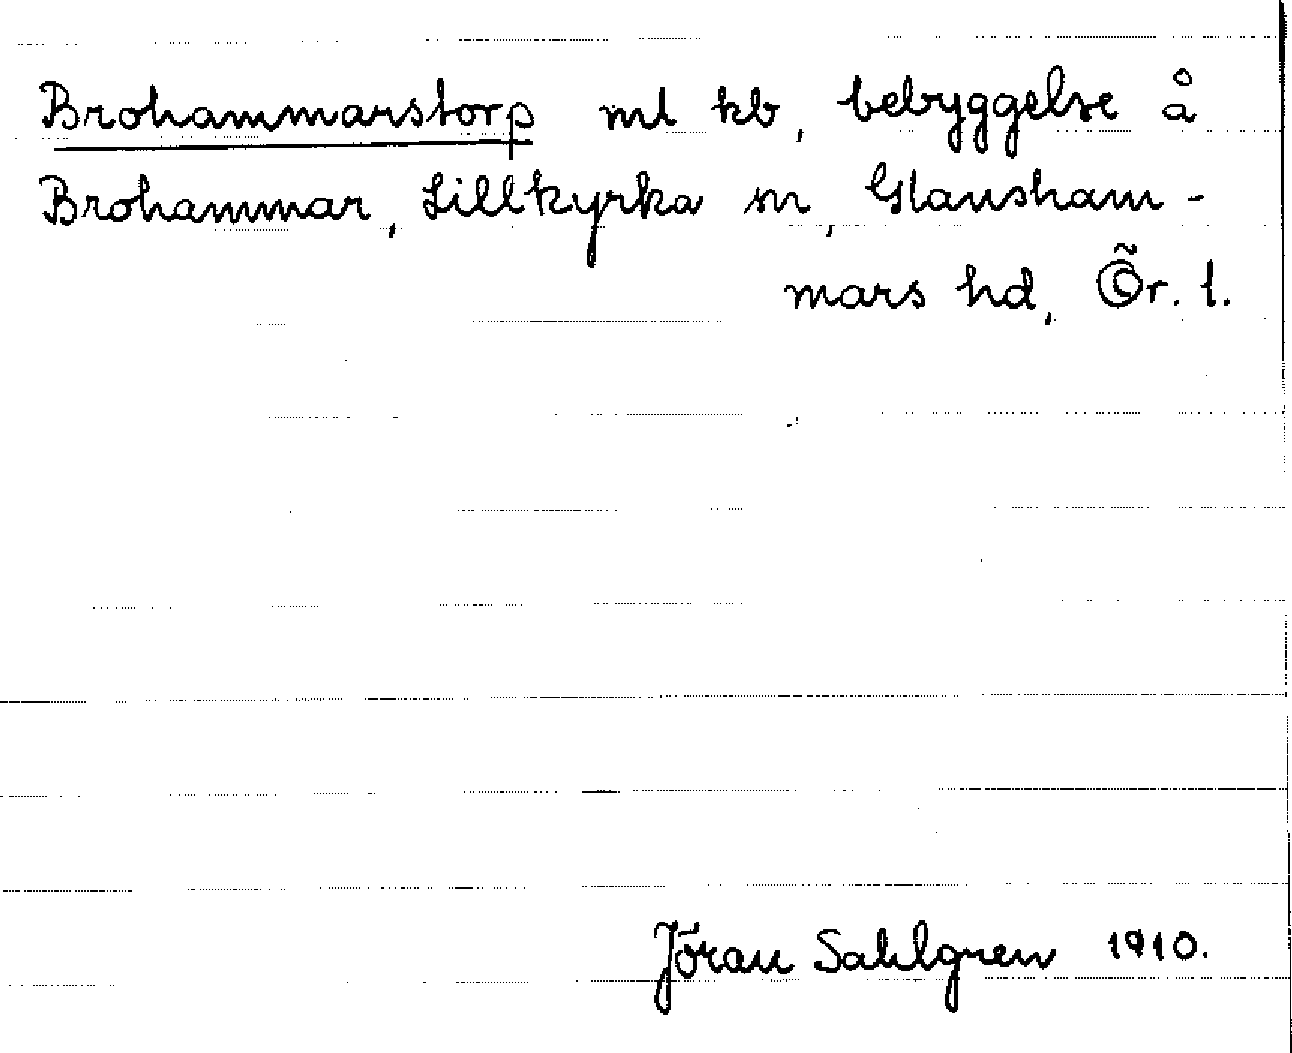 Brohammarstorp ml kb, bebyggelse å
Brohammar, Lillkyrka sn, Glansham-
mars hd, Ör. l.
Jöran Sahlgren 1910.